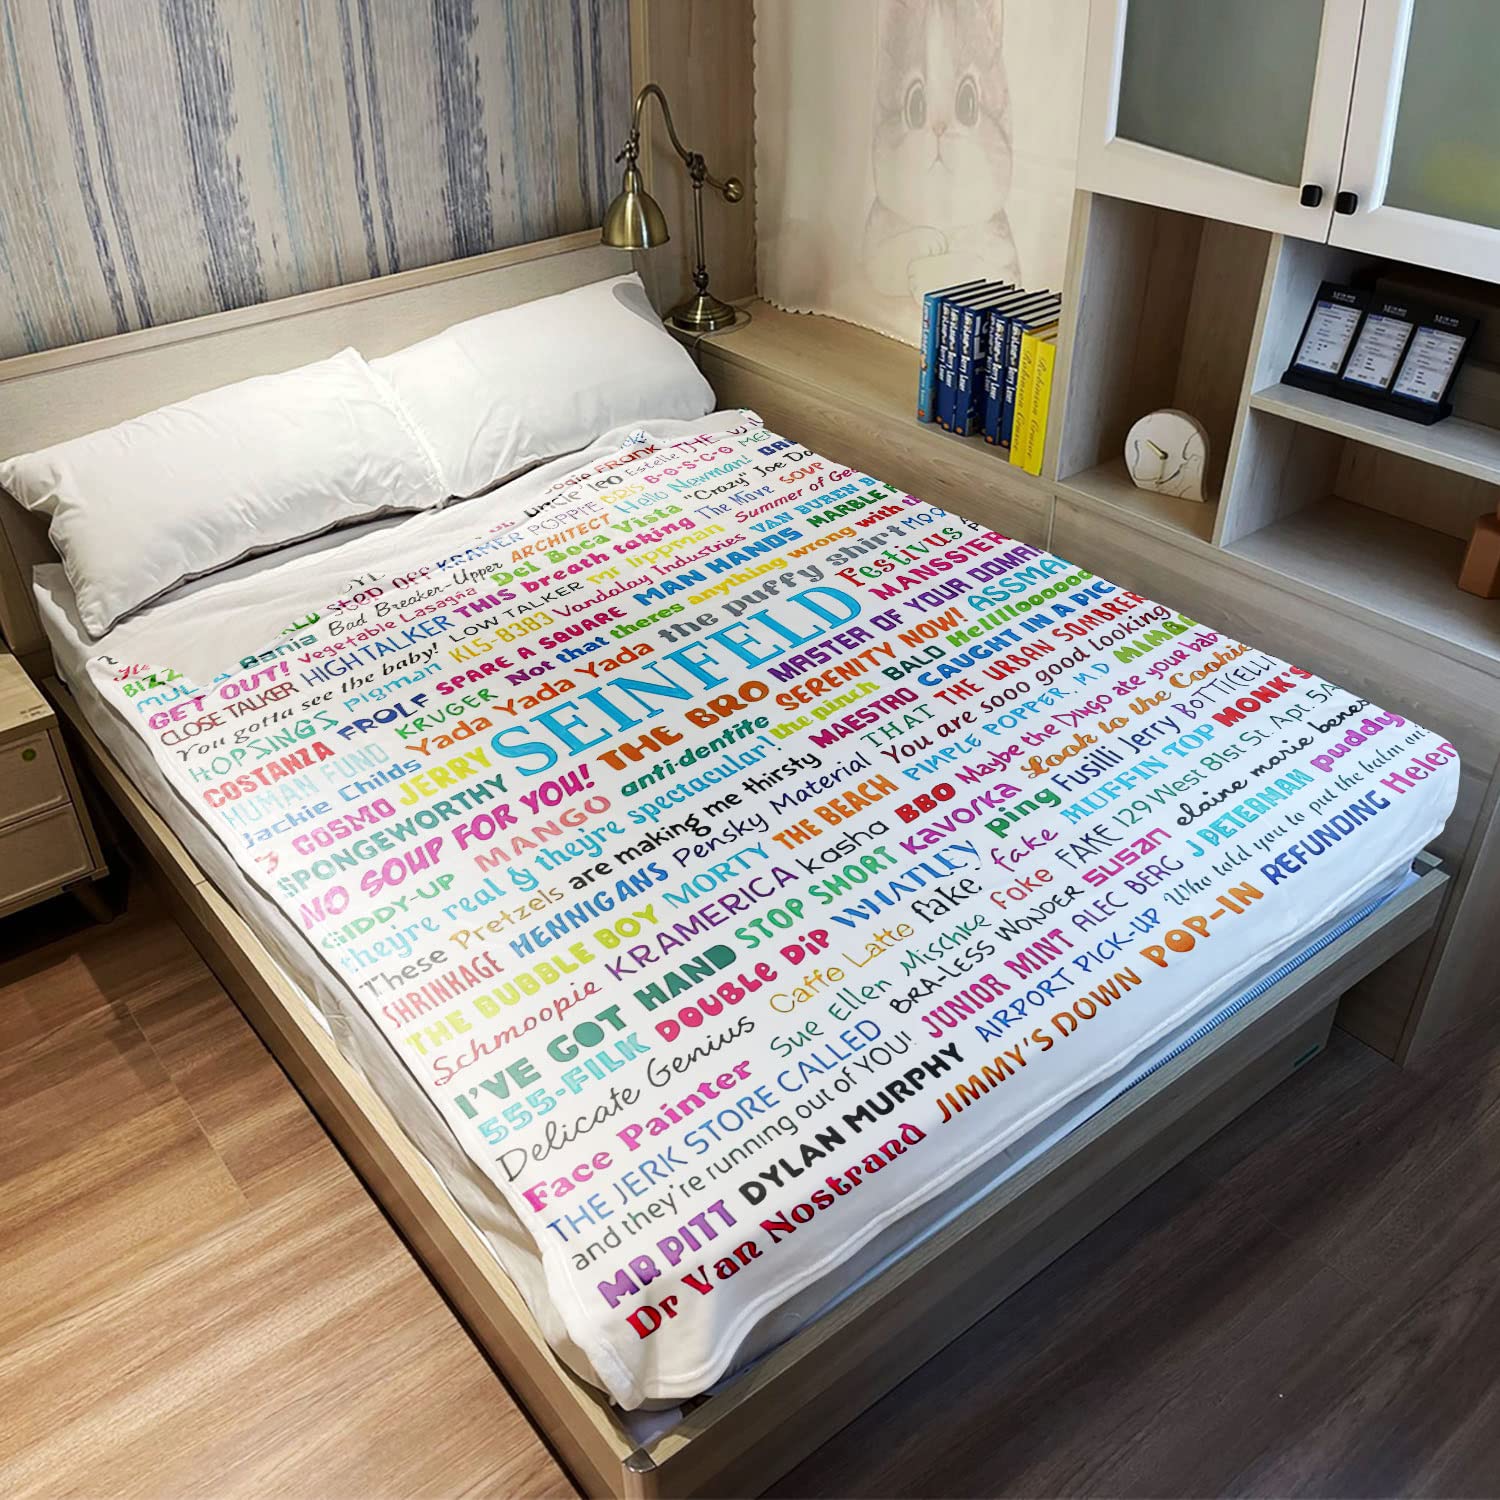 FRANK
Uncle Leo Estelle THE
POPPIE DRIS B-O-S-C-O
KRAMER ARCHITECT Hello Newman!
Stop OFF Del Boca Vista "Crazy" Joe Da
Bad Breaker-Upper this breath taking The Move SOUP
Bania Vegetable Lasagna Mr Lippman Summer of Geo
HIGH TALKER LOW TALKER Vandalay Industries VAN BUREN B
GET OUT! KL5-8383 MAN HANDS MARBLE R
CLOSE TALKER SPARE A SQUARE anything wrong with th
You gotta see the baby! Not that theres the puffy shirt
HOPSINGS pigman FROLF Yada Yada Yada Festivus
COSTANZA KRUGER SEINFELD MANSSIER
HUMAN FUND JERRY THE BRO MASTER OF YOUR DOMAI
Jackie Childs SPONGEWORTHY SERENITY NOW! ASSMA
COSMO NO SOUP FOR YOU! anti-dentite the pinch BALD Helllloooooo
GIDDY-UP MANGO MAESTRO CAUGHT IN A PIC
they're real & they're spectacular! THAT THE URBAN SOMBRER
These Pretzels are making me thirsty You are sooo good looking
SHRINKAGE HENNIGANS Pensky Material PIMPLE POPPER. M.D
THE BUBBLE BOY MORTY THE BEACH BBO Maybe the Dingo ate your baby
Schmoopie KRAMERICA kasha kavorka Look to the Cookie
I'VE GOT HAND STOP SHORT ping Fusilli Jerry BOTTICELLI
555-FILK DOUBLE DIP WHATLEY fake fake MUFFIN TOP MONK'S
Delicate Genius Caffe Latte Mischke fake FAKE 129 West 81st St. Apt. 5A
Face Painter Sue Ellen BRA-LESS WONDER susan elaine marie benes
THE JERK STORE CALLED JUNIOR MINT ALEC BERG J PETERMAN puddy
and they're running out of YOU! AIRPORT PICK-UP Who told you to put the balm on?
MR PITT DYLAN MURPHY JIMMY'S DOWN POP-IN REFUNDING Helen
Dr Van Nostrand